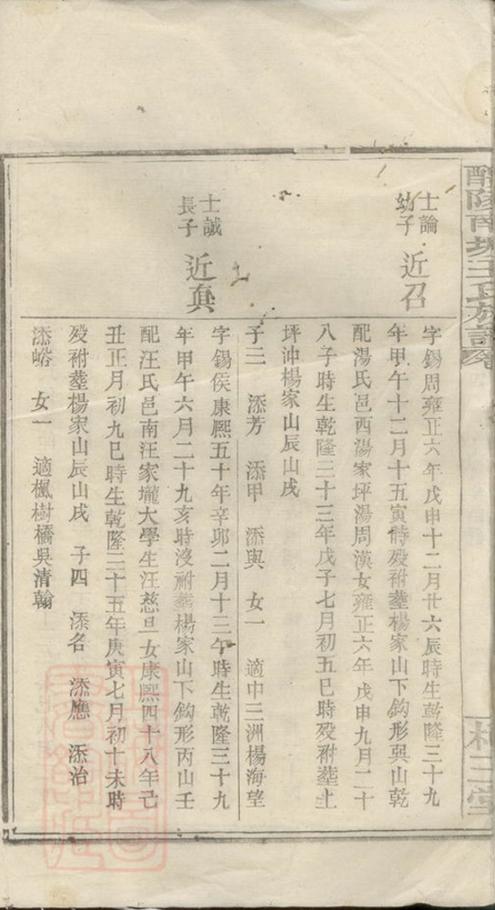 醴陵南城王氏族譜
士論
幼子
近召
字錫周雍正六年戊申十二月廿六辰時生乾隆三十九
年甲午十二月十五寅時殁祔葬楊家山下鈎形巽山乾
配湯氏邑西湯家坪湯周漢女雍正六年戊申九月二十
八子時生乾隆三十三年戊子七月初五巳時殁祔葬土
坪沖楊家山辰山戌
子三 添芳 添甲 添與 女一 適中三洲楊海望
士誠
長子
近眞
字錫侯康熙五十年辛卯二月十三午時生乾隆三十九
年甲午六月二十九亥時沒祔葬楊家山下鈎形丙山壬
配汪氏邑南汪家壠大學生汪慈旦女康熙四十八年己
丑正月初九巳時生乾隆三十五年庚寅七月初十未時
殁祔葬楊家山辰山戌 子四 添名 添應 添治
添峪 女一 適楓樹橋吳清翰
三堂